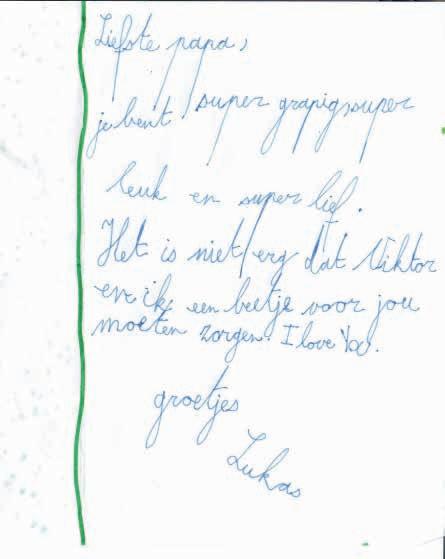 Liefste papa,
je bent super grapig, super
leuk en super lief.
Het is niet erg dat Viktor
en ik een beetje voor jou
moeten zorgen. I love You.
groetjes
Lukas